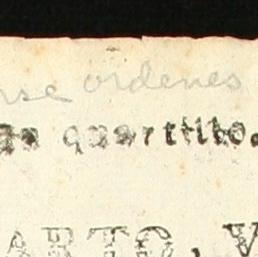 rse ordenes
quartillo.
ARTO, V